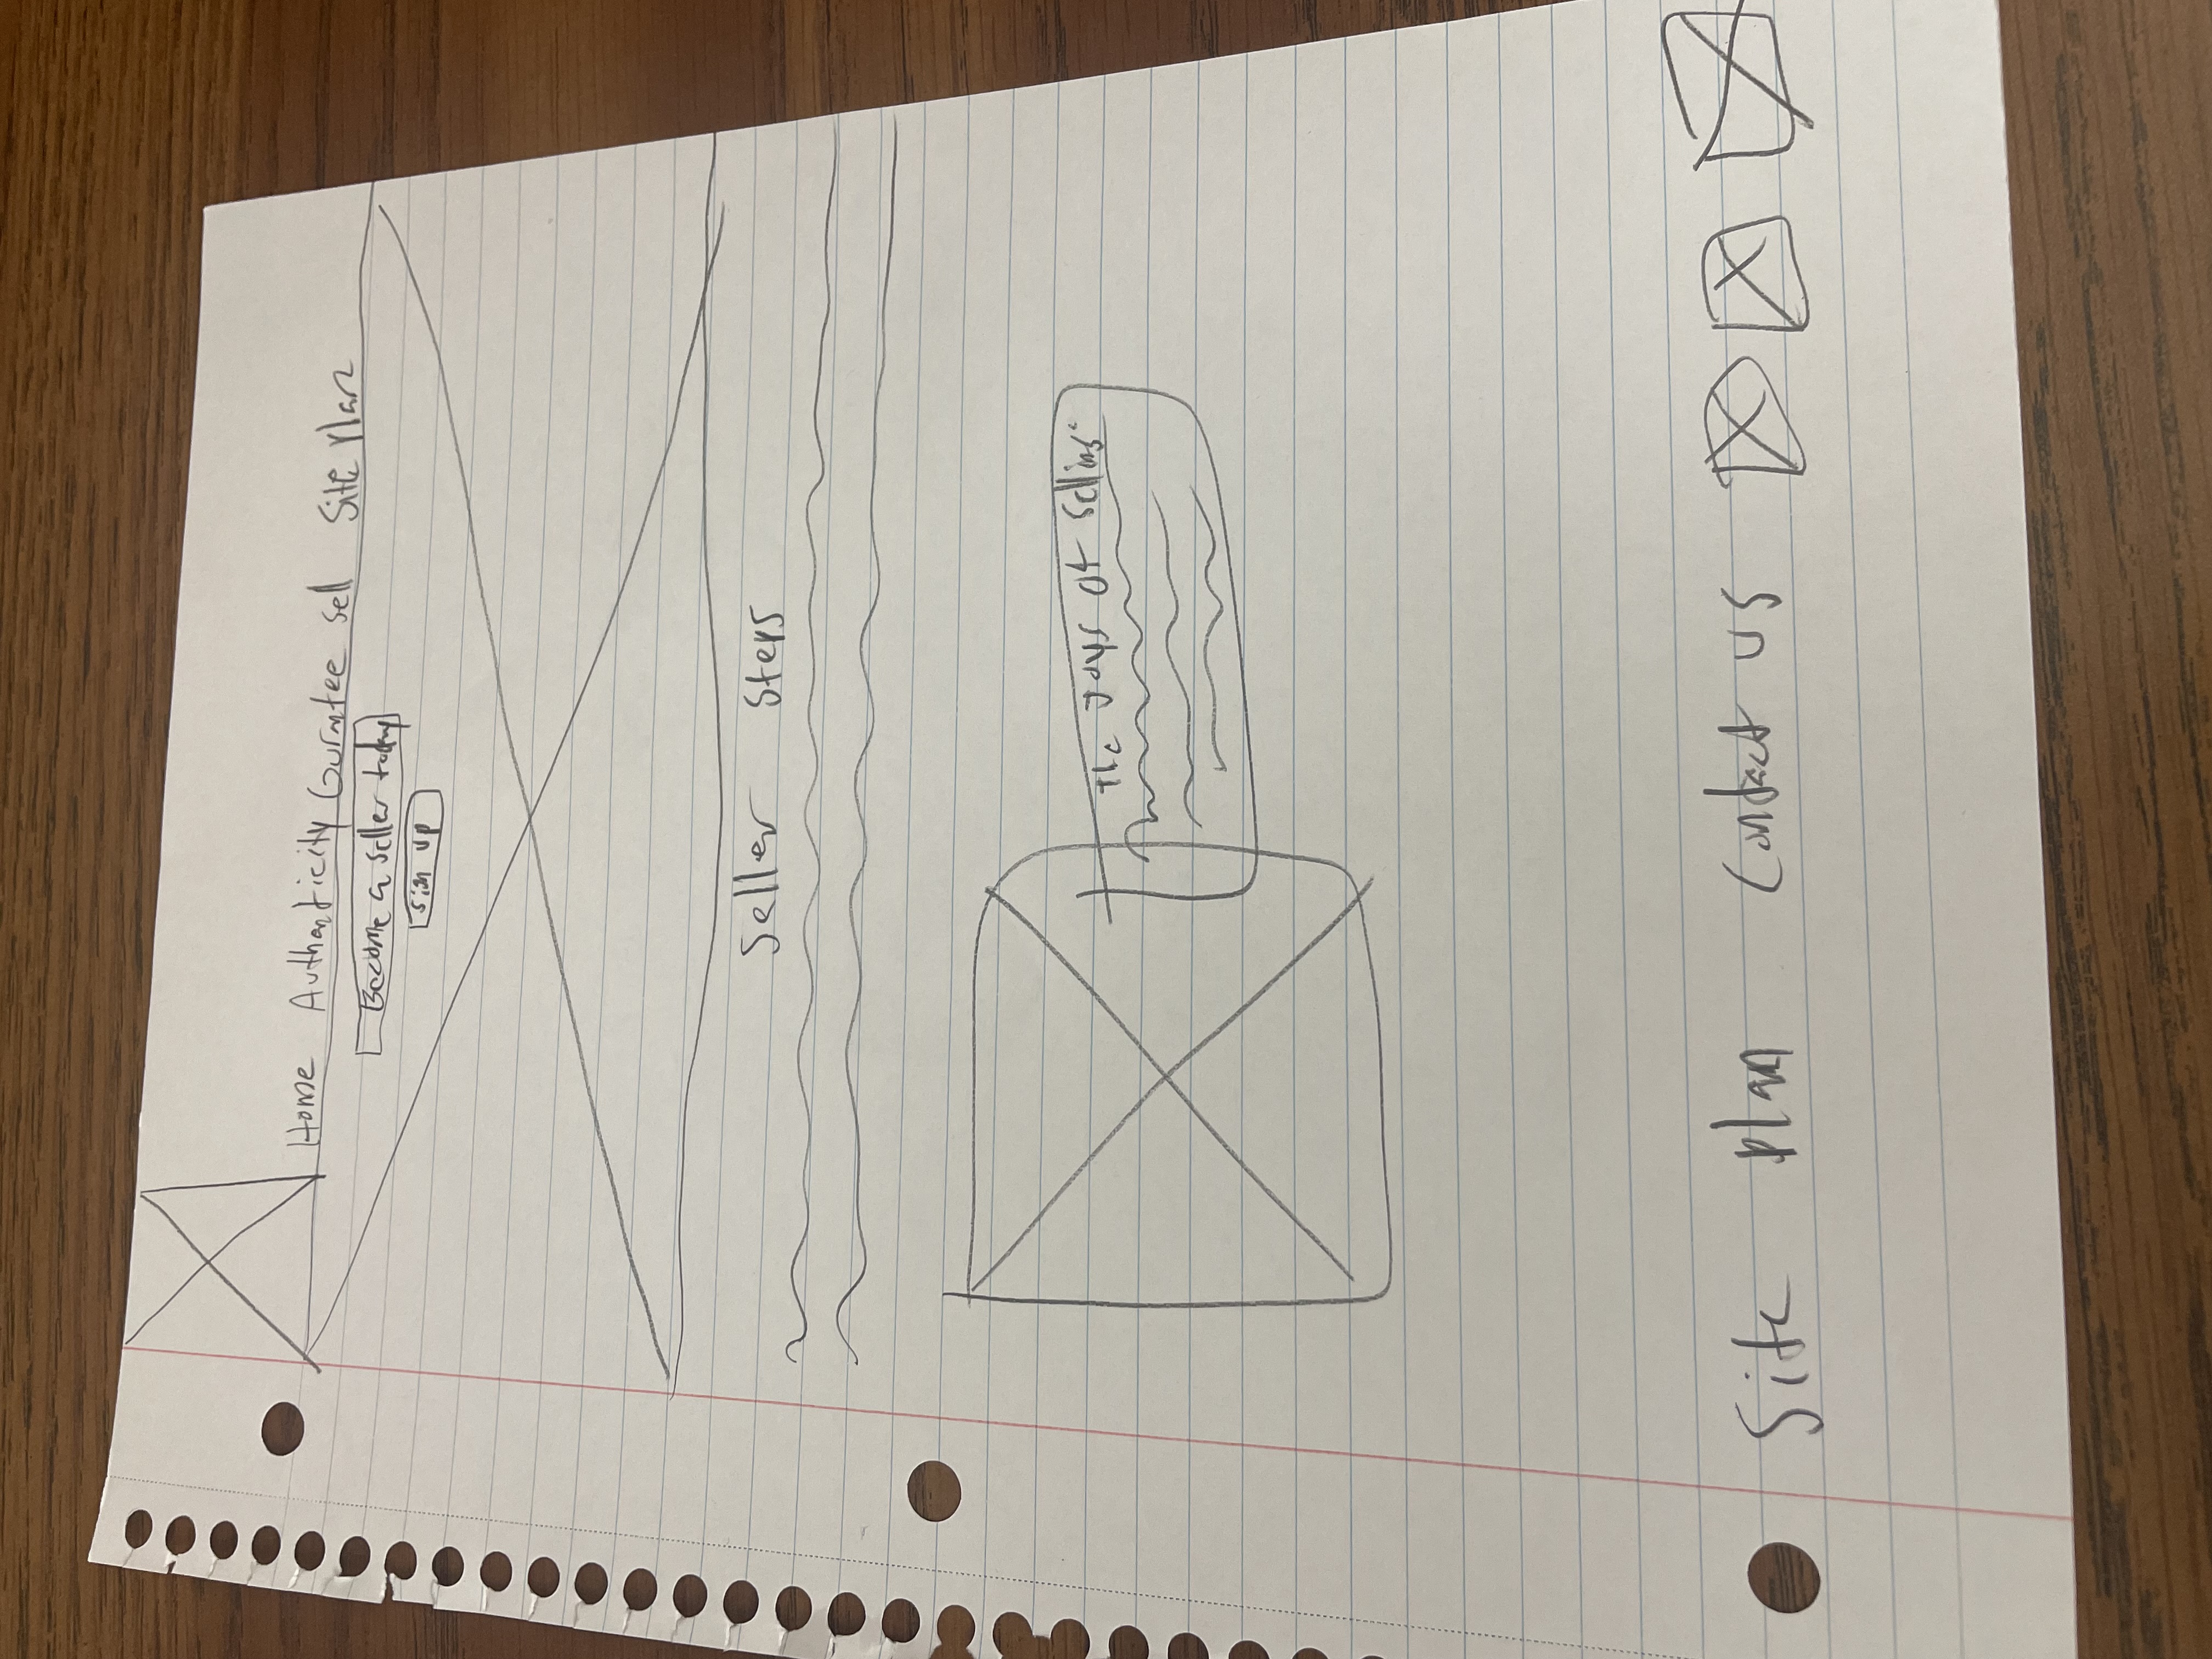 Home Authenticity Gurntee sell Site Plan
Become a seller today
sign up
Seller Steps
The Joys Of Selling
Site Plan Contact us